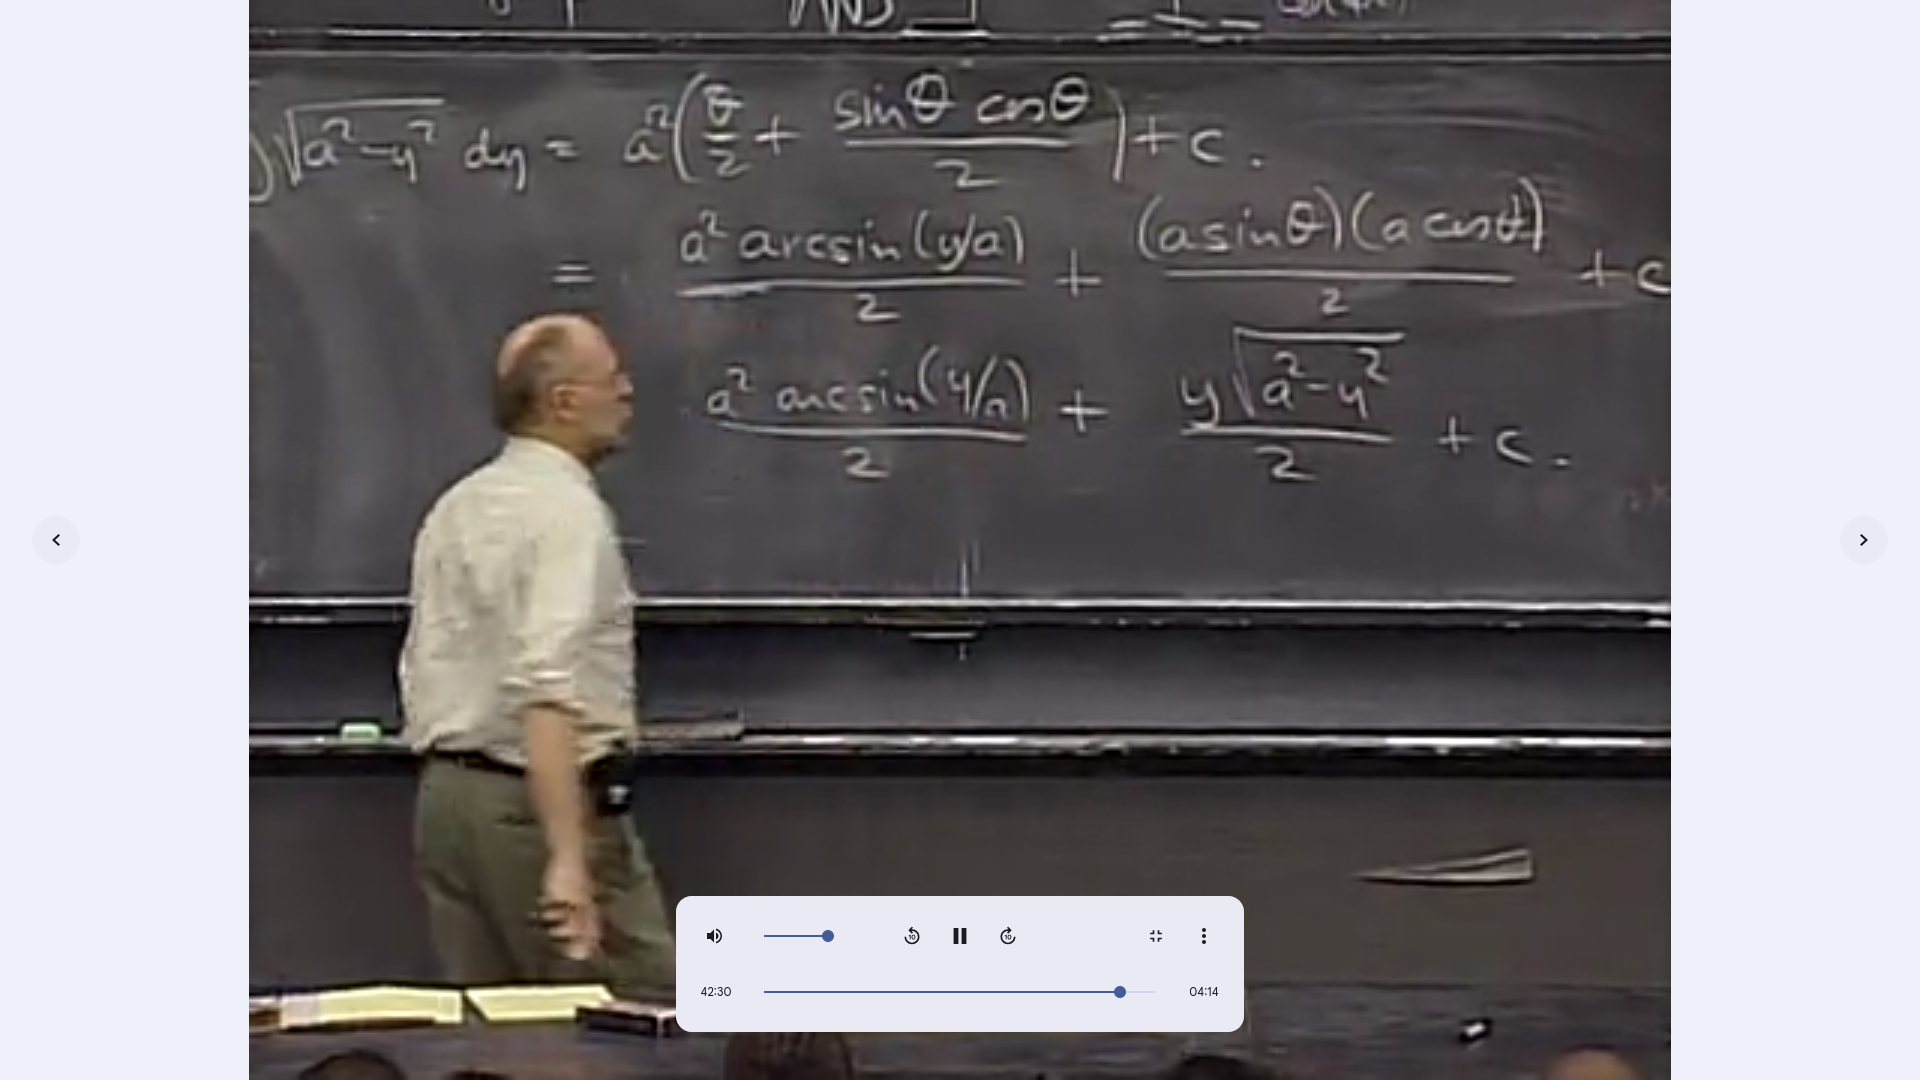 ∫√(a²-y²) dy = a²(θ/2 + sinθ cosθ/2) + c.
= a² arcsin(y/a)/2 + (a sinθ)(a cosθ)/2 + c
a² arcsin(y/a)/2 + y√(a²-y²)/2 + c.
10 10
42:30 04:14